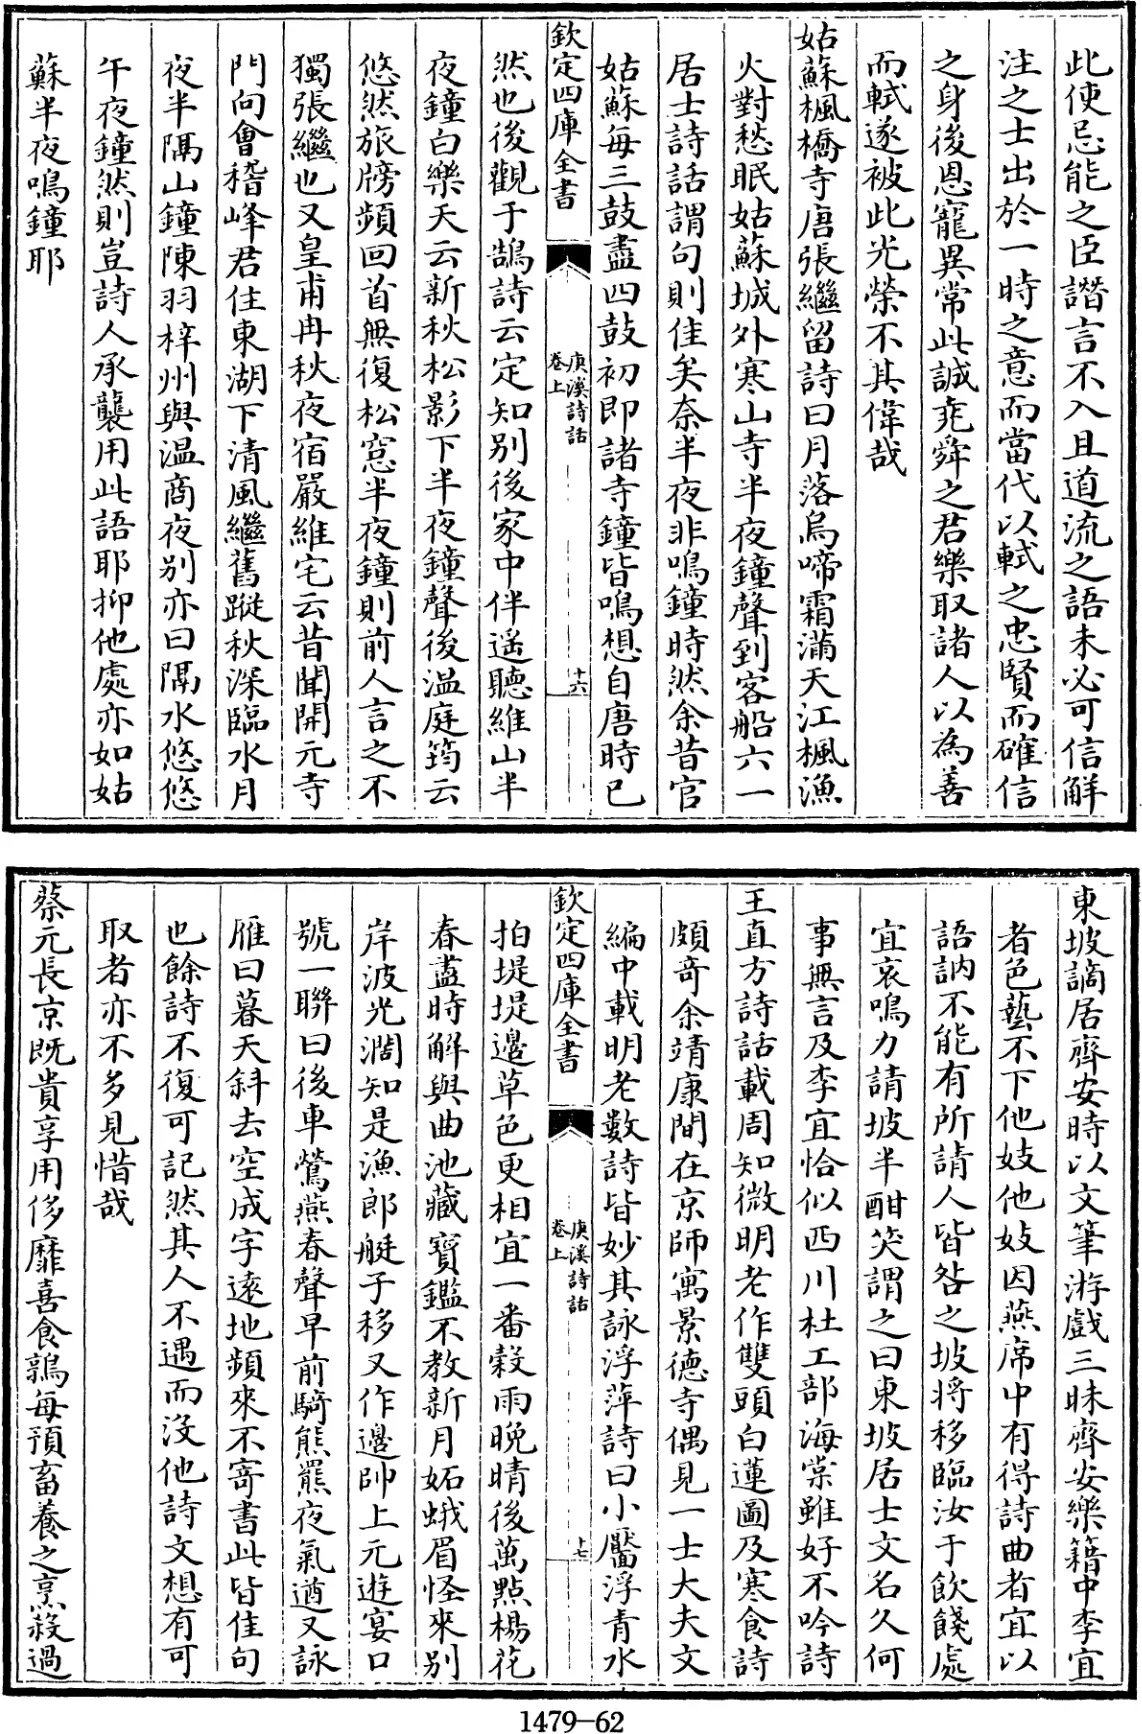 此使忌能之臣譖言不入且道流之語未必可信解
注之士出於一時之意而當代以軾之忠賢而確信
之身後恩寵異常此誠堯舜之君樂取諸人以為善
而軾遂被此光榮不其偉哉
姑蘇楓橋寺唐張繼留詩曰月落烏啼霜滿天江楓漁
火對愁眠姑蘇城外寒山寺半夜鐘聲到客船六一
居士詩話謂句則佳矣奈半夜非鳴鐘時然余昔官
姑蘇每三鼓盡四鼓初即諸寺鐘皆鳴想自唐時已
欽定四庫全書
庚溪詩話
卷上
十六
然也後觀于鵠詩云定知別後家中伴遥聽維山半
夜鐘白樂天云新秋松影下半夜鐘聲後温庭筠云
悠然旅牓頻回首無復松窓半夜鐘則前人言之不
獨張繼也又皇甫冉秋夜宿嚴維宅云昔聞開元寺
門向會稽峰君住東湖下清風繼舊蹤秋深臨水月
夜半隔山鐘陳羽梓州與温商夜別亦曰隔水悠悠
午夜鐘然則豈詩人承襲用此語耶抑他處亦如姑
蘇半夜鳴鐘耶
東坡謫居齊安時以文筆游戲三昧齊安樂籍中李宜
者色藝不下他妓他妓因燕席中有得詩曲者宜以
語訥不能有所請人皆咎之坡將移臨汝于飲餞處
宜哀鳴力請坡半酣笑謂之曰東坡居士文名久何
事無言及李宜恰似西川杜工部海棠雖好不吟詩
王直方詩話載周知微明老作雙頭白蓮圖及寒食詩
頗奇余靖康間在京師寓景德寺偶見一士大夫文
編中載明老數詩皆妙其詠浮萍詩曰小靨浮青水
欽定四庫全書
庚溪詩話
卷上
十七
拍堤堤邊草色更相宜一番穀雨晚晴後萬點楊花
春盡時解與曲池藏寳鑑不教新月妬蛾眉怪來別
岸波光濶知是漁郎艇子移又作邊帥上元遊宴口
號一聯曰後車鶯燕春聲早前騎熊羆夜氣遒又詠
雁曰暮天斜去空成字遠地頻來不寄書此皆佳句
也餘詩不復可記然其人不遇而沒他詩文想有可
取者亦不多見惜哉
蔡元長京既貴享用侈靡喜食鶉每預畜養之烹殺過
1479-62